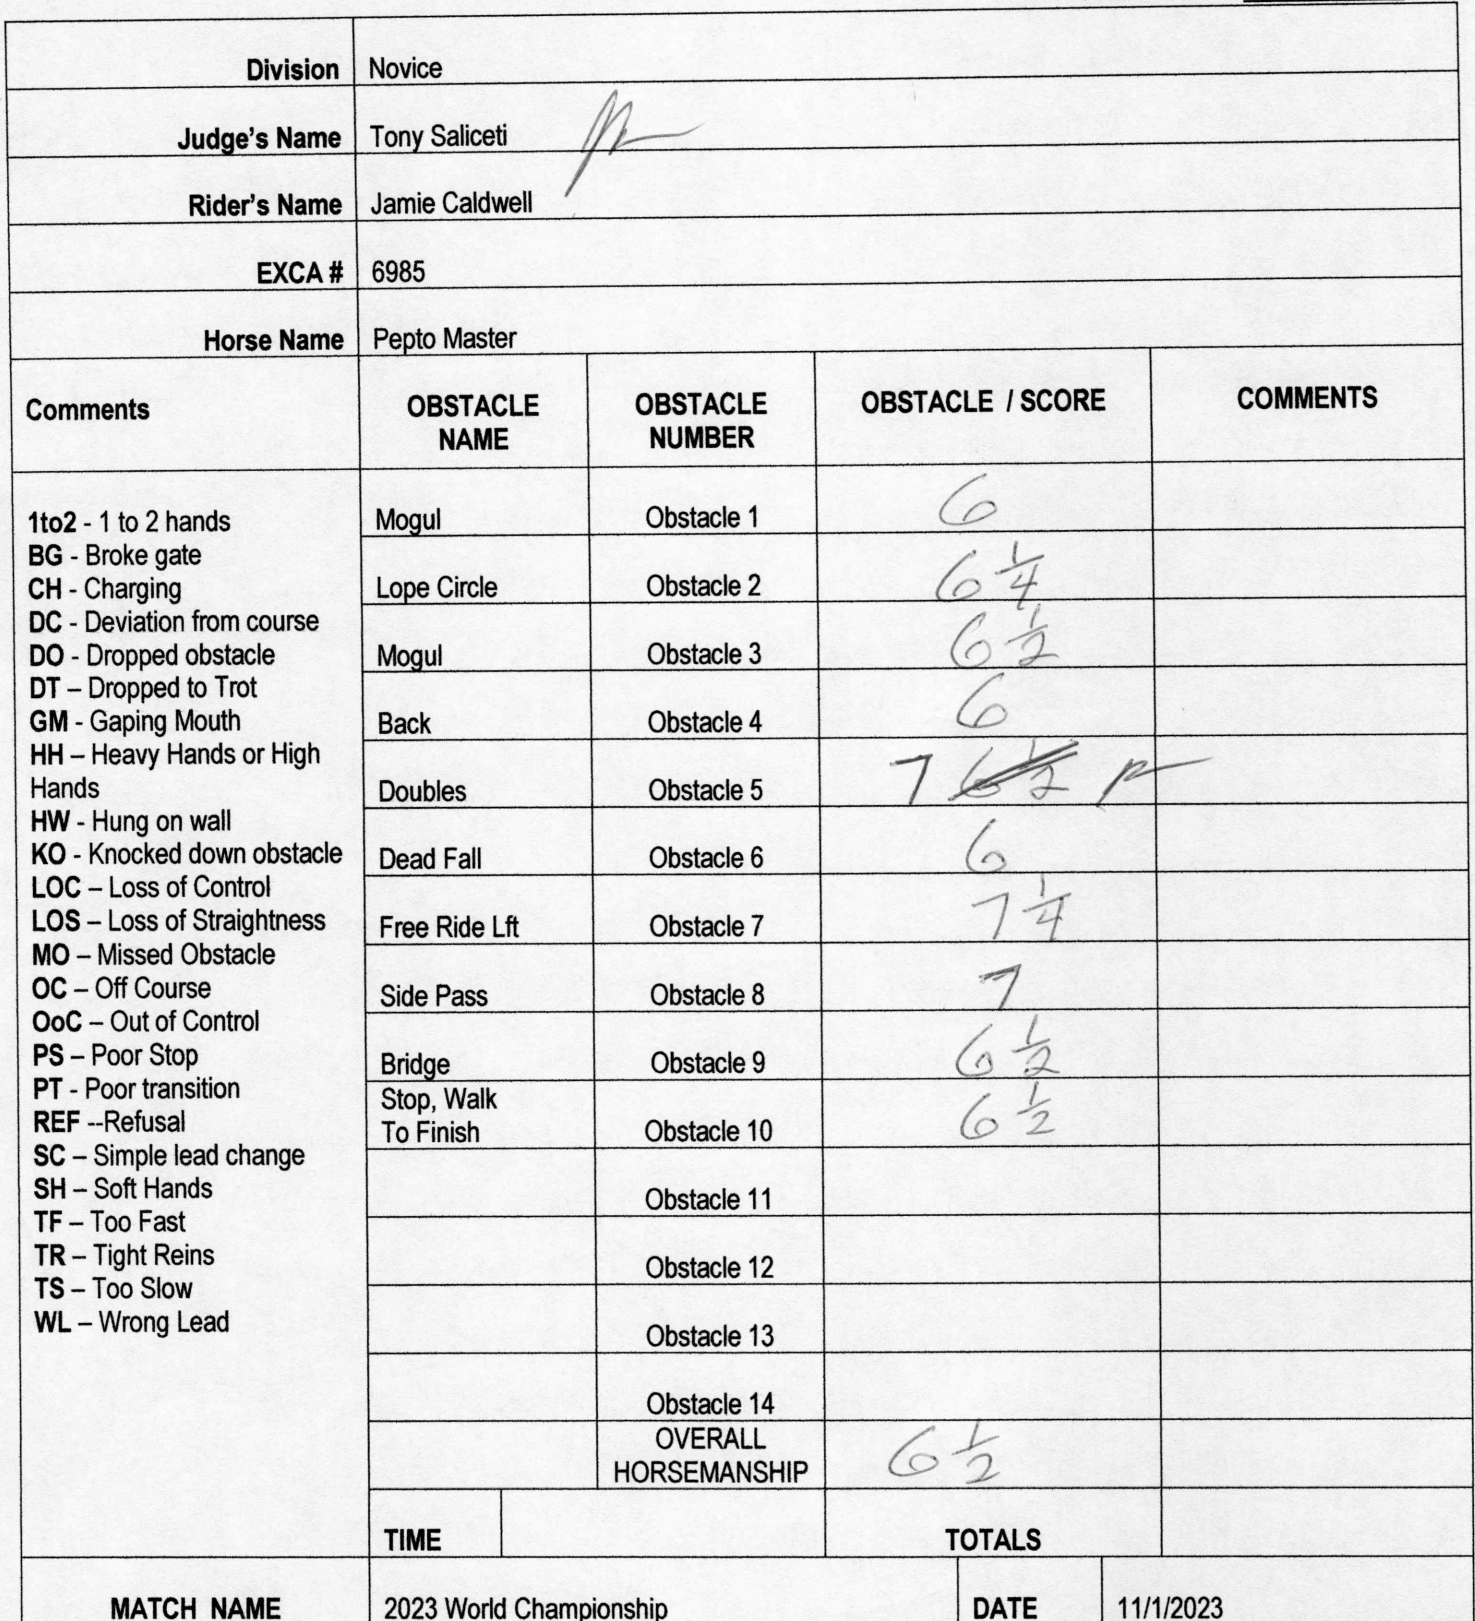 Division Novice
Judge's Name Tony Saliceti
Rider's Name Jamie Caldwell
EXCA # 6985
Horse Name Pepto Master
Comments
OBSTACLE NAME
OBSTACLE NUMBER
OBSTACLE / SCORE
COMMENTS
1to2 - 1 to 2 hands
BG - Broke gate
CH - Charging
DC - Deviation from course
DO - Dropped obstacle
DT – Dropped to Trot
GM - Gaping Mouth
HH – Heavy Hands or High
Hands
HW - Hung on wall
KO - Knocked down obstacle
LOC – Loss of Control
LOS – Loss of Straightness
MO – Missed Obstacle
OC – Off Course
OoC – Out of Control
PS – Poor Stop
PT - Poor transition
REF --Refusal
SC – Simple lead change
SH – Soft Hands
TF – Too Fast
TR – Tight Reins
TS – Too Slow
WL – Wrong Lead
Mogul Obstacle 1 6
Lope Circle Obstacle 2 6 1/4
Mogul Obstacle 3 6 1/2
Back Obstacle 4 6
Doubles Obstacle 5 7 6 1/2
Dead Fall Obstacle 6 6
Free Ride Lft Obstacle 7 7 1/4
Side Pass Obstacle 8 7
Bridge Obstacle 9 6 1/2
Stop, Walk
To Finish Obstacle 10 6 1/2
Obstacle 11
Obstacle 12
Obstacle 13
Obstacle 14
OVERALL
HORSEMANSHIP 6 1/2
TIME TOTALS
MATCH NAME 2023 World Championship DATE 11/1/2023